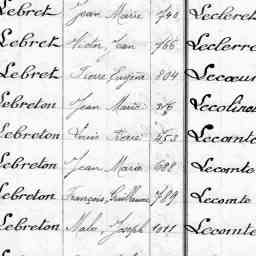 Lebret Jean Marie 740 Lecleret
Lebret Victor Jean 766 Leclerc
Lebret Pierre Eugène 804 Lecoeur
Lebreton Jean Marie 316
Lebreton Louis Pierre 453 Lecomte
Lebreton Jean Marie 688 Lecomte
Lebreton François Guillaume 789 Lecomte
Lebreton Malo Joseph 1011 Lecomte